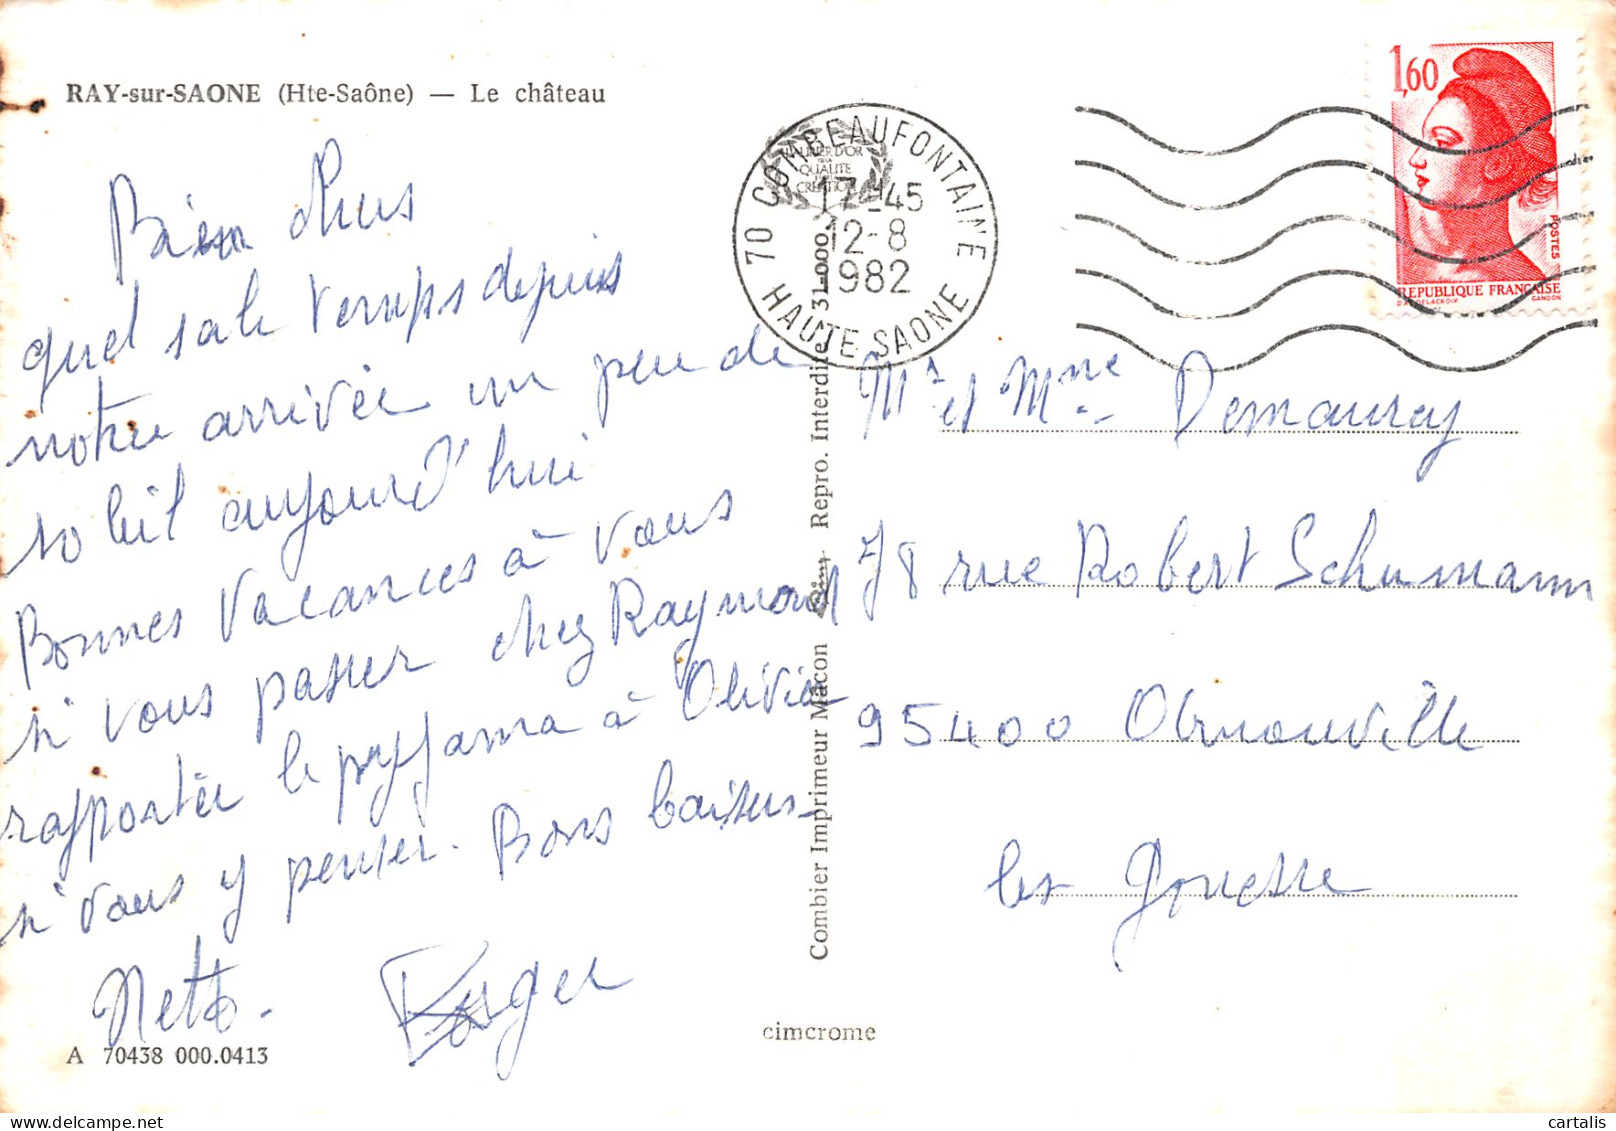 RAY-sur-SAONE (Hte-Saône) — Le château
Bien chers
quel sale temps depuis
notre arrivée un peu de
soleil aujourd'hui
Bonnes Vacances à vous
si vous passer chez Raymond
rapporter le pyjama à Olivia
si vous y penser. Bons baisers
Netto. Roger
A 70438 000.0413
cimcrome
Combier Imprimeur Mâcon Repro. Interdite 31-000
70 COMBEAUFONTAINE
LAURIER D'OR
DE LA
QUALITE
CREATION
17-45
12-8
1982
HAUTE SAONE
1,60
POSTES
REPUBLIQUE FRANÇAISE
D'AP. DELACROIX GANDON
Mr et Mme Demauray
78 rue Robert Schumann
95400 Arnouville
les Gonesse
cartalis